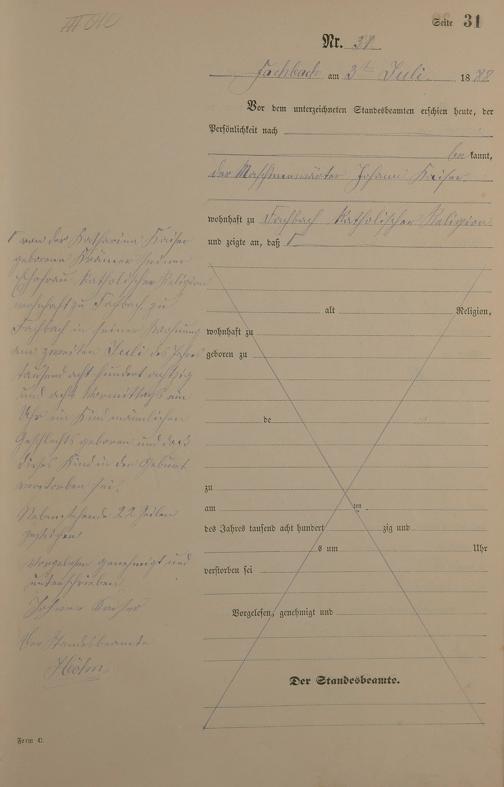 Seite 31
Nr. 38
Fachbach am 3ten Juli 1888
Vor dem unterzeichneten Standesbeamten erschien heute, der
Persönlichkeit nach
be kannt,
der Maschinenwärter Johann Kaiser
wohnhaft zu Fachbach katholischer Religion
und zeigte an, daß Γ
Γ von der Katharina Kaiser
geborenen Krämer seiner
Ehefrau katholischer Religion
wohnhaft zu Fachbach zu
Fachbach in seiner Wohnung
am zweiten Juli des Jahres
tausend acht hundert achtzig
und acht Vormittags um
Uhr ein Kind männlichen
Geschlechts geboren und daß
dieses Kind in der Geburt
verstorben sei.
Nebenstehende 22 Zeilen
gestrichen
Vorgelesen genehmigt und
unterschrieben
Johann Kaiser
Der Standesbeamte
Höhn
alt Religion,
wohnhaft zu
geboren zu
de
zu
am ten
des Jahres tausend acht hundert zig und
s um Uhr
verstorben sei
Vorgelesen, genehmigt und
Der Standesbeamte.
Form C.